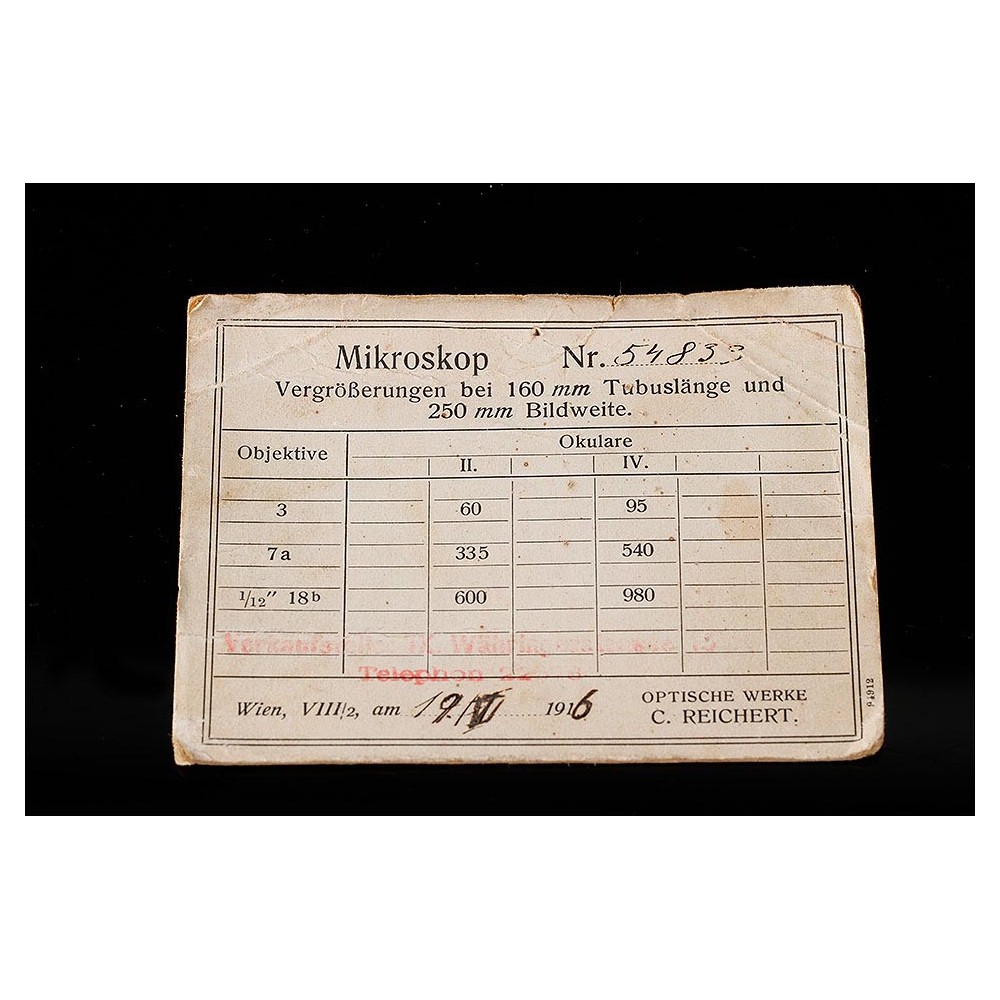 Mikroskop Nr. 54833
Vergrößerungen bei 160 mm Tubuslänge und
250 mm Bildweite.
Objektive Okulare
II. IV.
3 60 95
7a 335 540
1/12″ 18b 600 980
Telephon
Wien, VIII/2, am 19/VI 1916
OPTISCHE WERKE
C. REICHERT.
94912